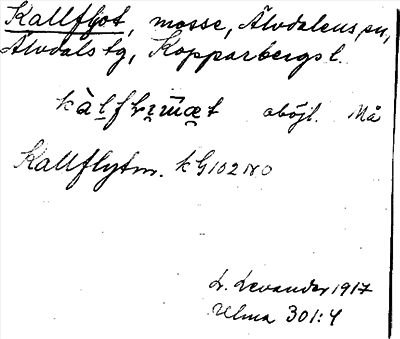 Kallflyot, mosse, Älvdalens sn,
Älvdals tg, Kopparbergs l.
oböjl. Må
Kallflytm. kG102NO
L. Levander 1917
Ulma 301:4